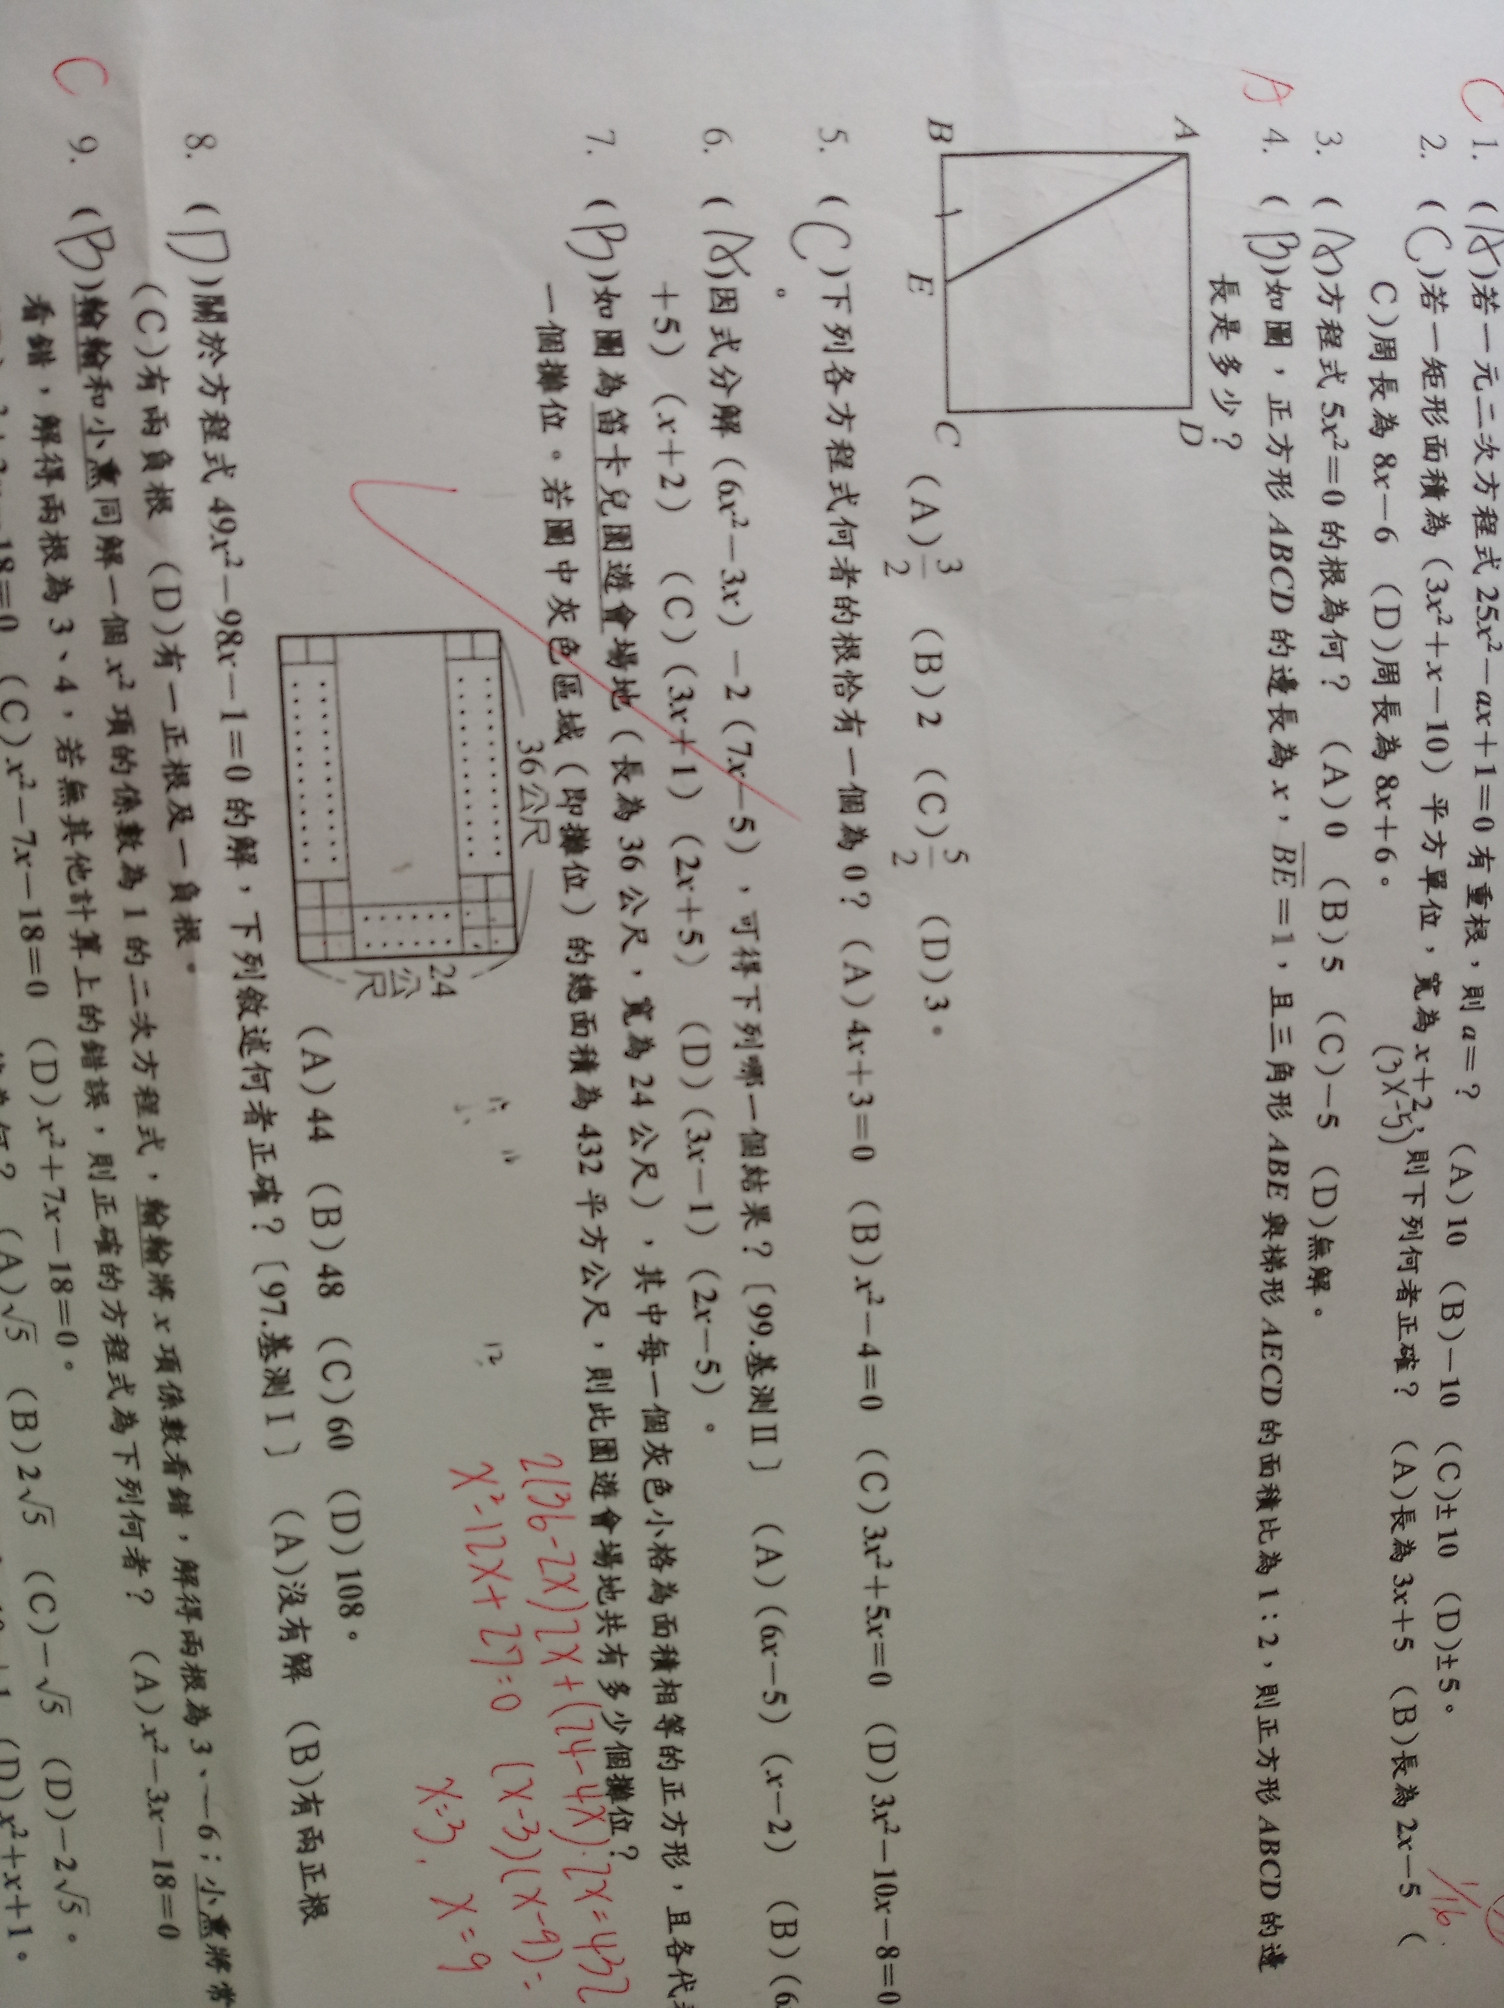 C 1. (A)若一元二次方程式 25x²－ax＋1＝0 有重根，則 a＝？ (A)10 (B)－10 (C)±10 (D)±5。
2. (C)若一矩形面積為（3x²＋x－10）平方單位，寬為 x＋2，則下列何者正確？ (A)長為 3x＋5 (B)長為 2x－5 (
(3x-5)
1/16
C)周長為 8x－6 (D)周長為 8x＋6。
3. (A)方程式 5x²＝0 的根為何？ (A)0 (B)5 (C)－5 (D)無解。
A 4. (B)如圖，正方形 ABCD 的邊長為 x，BE＝1，且三角形 ABE 與梯形 AECD 的面積比為 1：2，則正方形 ABCD 的邊
長是多少？
A D
B E C
(A)3/2 (B)2 (C)5/2 (D)3。
5. (C)下列各方程式何者的根恰有一個為 0？ (A)4x＋3＝0 (B)x²－4＝0 (C)3x²＋5x＝0 (D)3x²－10x－8＝0
。
6. (A)因式分解（6x²－3x）－2（7x－5），可得下列哪一個結果？〔99.基測II〕 (A)（6x－5）（x－2） (B)（6
＋5）（x＋2） (C)（3x＋1）（2x＋5） (D)（3x－1）（2x－5）。
7. (B)如圖為笛卡兒園遊會場地（長為 36 公尺，寬為 24 公尺），其中每一個灰色小格為面積相等的正方形，且各代
一個攤位。若圖中灰色區域（即攤位）的總面積為 432 平方公尺，則此園遊會場地共有多少個攤位？
36公尺
24公尺
12
2(36-2x)2x+(24-4x)·2x=432
x²-12x+27=0 (x-3)(x-9)=
x=3, x=9
(A)44 (B)48 (C)60 (D)108。
8. (D)關於方程式 49x²－98x－1＝0 的解，下列敘述何者正確？〔97.基測I〕 (A)沒有解 (B)有兩正根
(C)有兩負根 (D)有一正根及一負根。
C 9. (B)翰翰和小熏同解一個 x² 項的係數為 1 的二次方程式，翰翰將 x 項係數看錯，解得兩根為 3、－6；小熏將常
看錯，解得兩根為 3、4，若無其他計算上的錯誤，則正確的方程式為下列何者？ (A)x²－3x－18＝0
18＝0 (C)x²－7x－18＝0 (D)x²＋7x－18＝0。
(A)√5 (B)2√5 (C)－√5 (D)－2√5。
(D)x²＋x＋1。